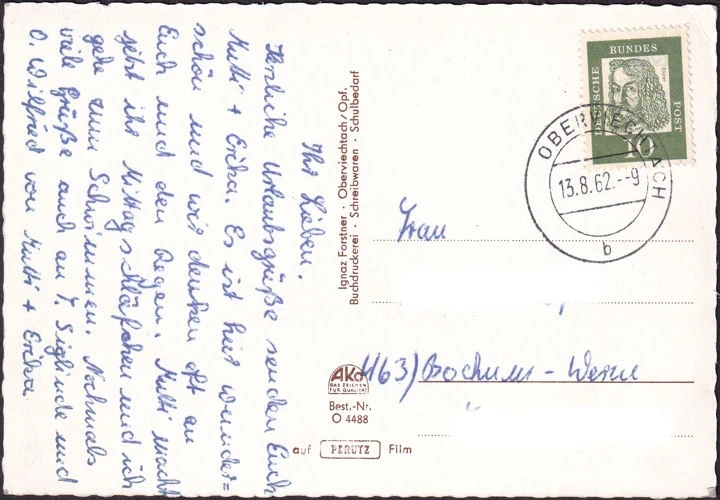 Ihr Lieben.
Herzliche Urlaubsgrüße senden Euch
Mutti + Erika. Es ist hier wunder=
schön und wir denken oft an
Euch und den Regen. Mutti macht
jetzt ihr Mittagsschläfchen und ich
gehe zum Schwimmen. Nochmals
viele Grüße auch an T. Siglinde und
O. Wilfried von Mutti + Erika.
Ignaz Forstner · Oberviechtach/Opf.
Buchdruckerei · Schreibwaren · Schulbedarf
DEUTSCHE BUNDESPOST
Dürer
10
OBERVIECHTACH
13.8.62.--9
b
Frau
463) Bochum - Werne
AKO
DAS ZEICHEN
FÜR QUALITÄT
Best.-Nr.
O 4488
auf PERUTZ Film